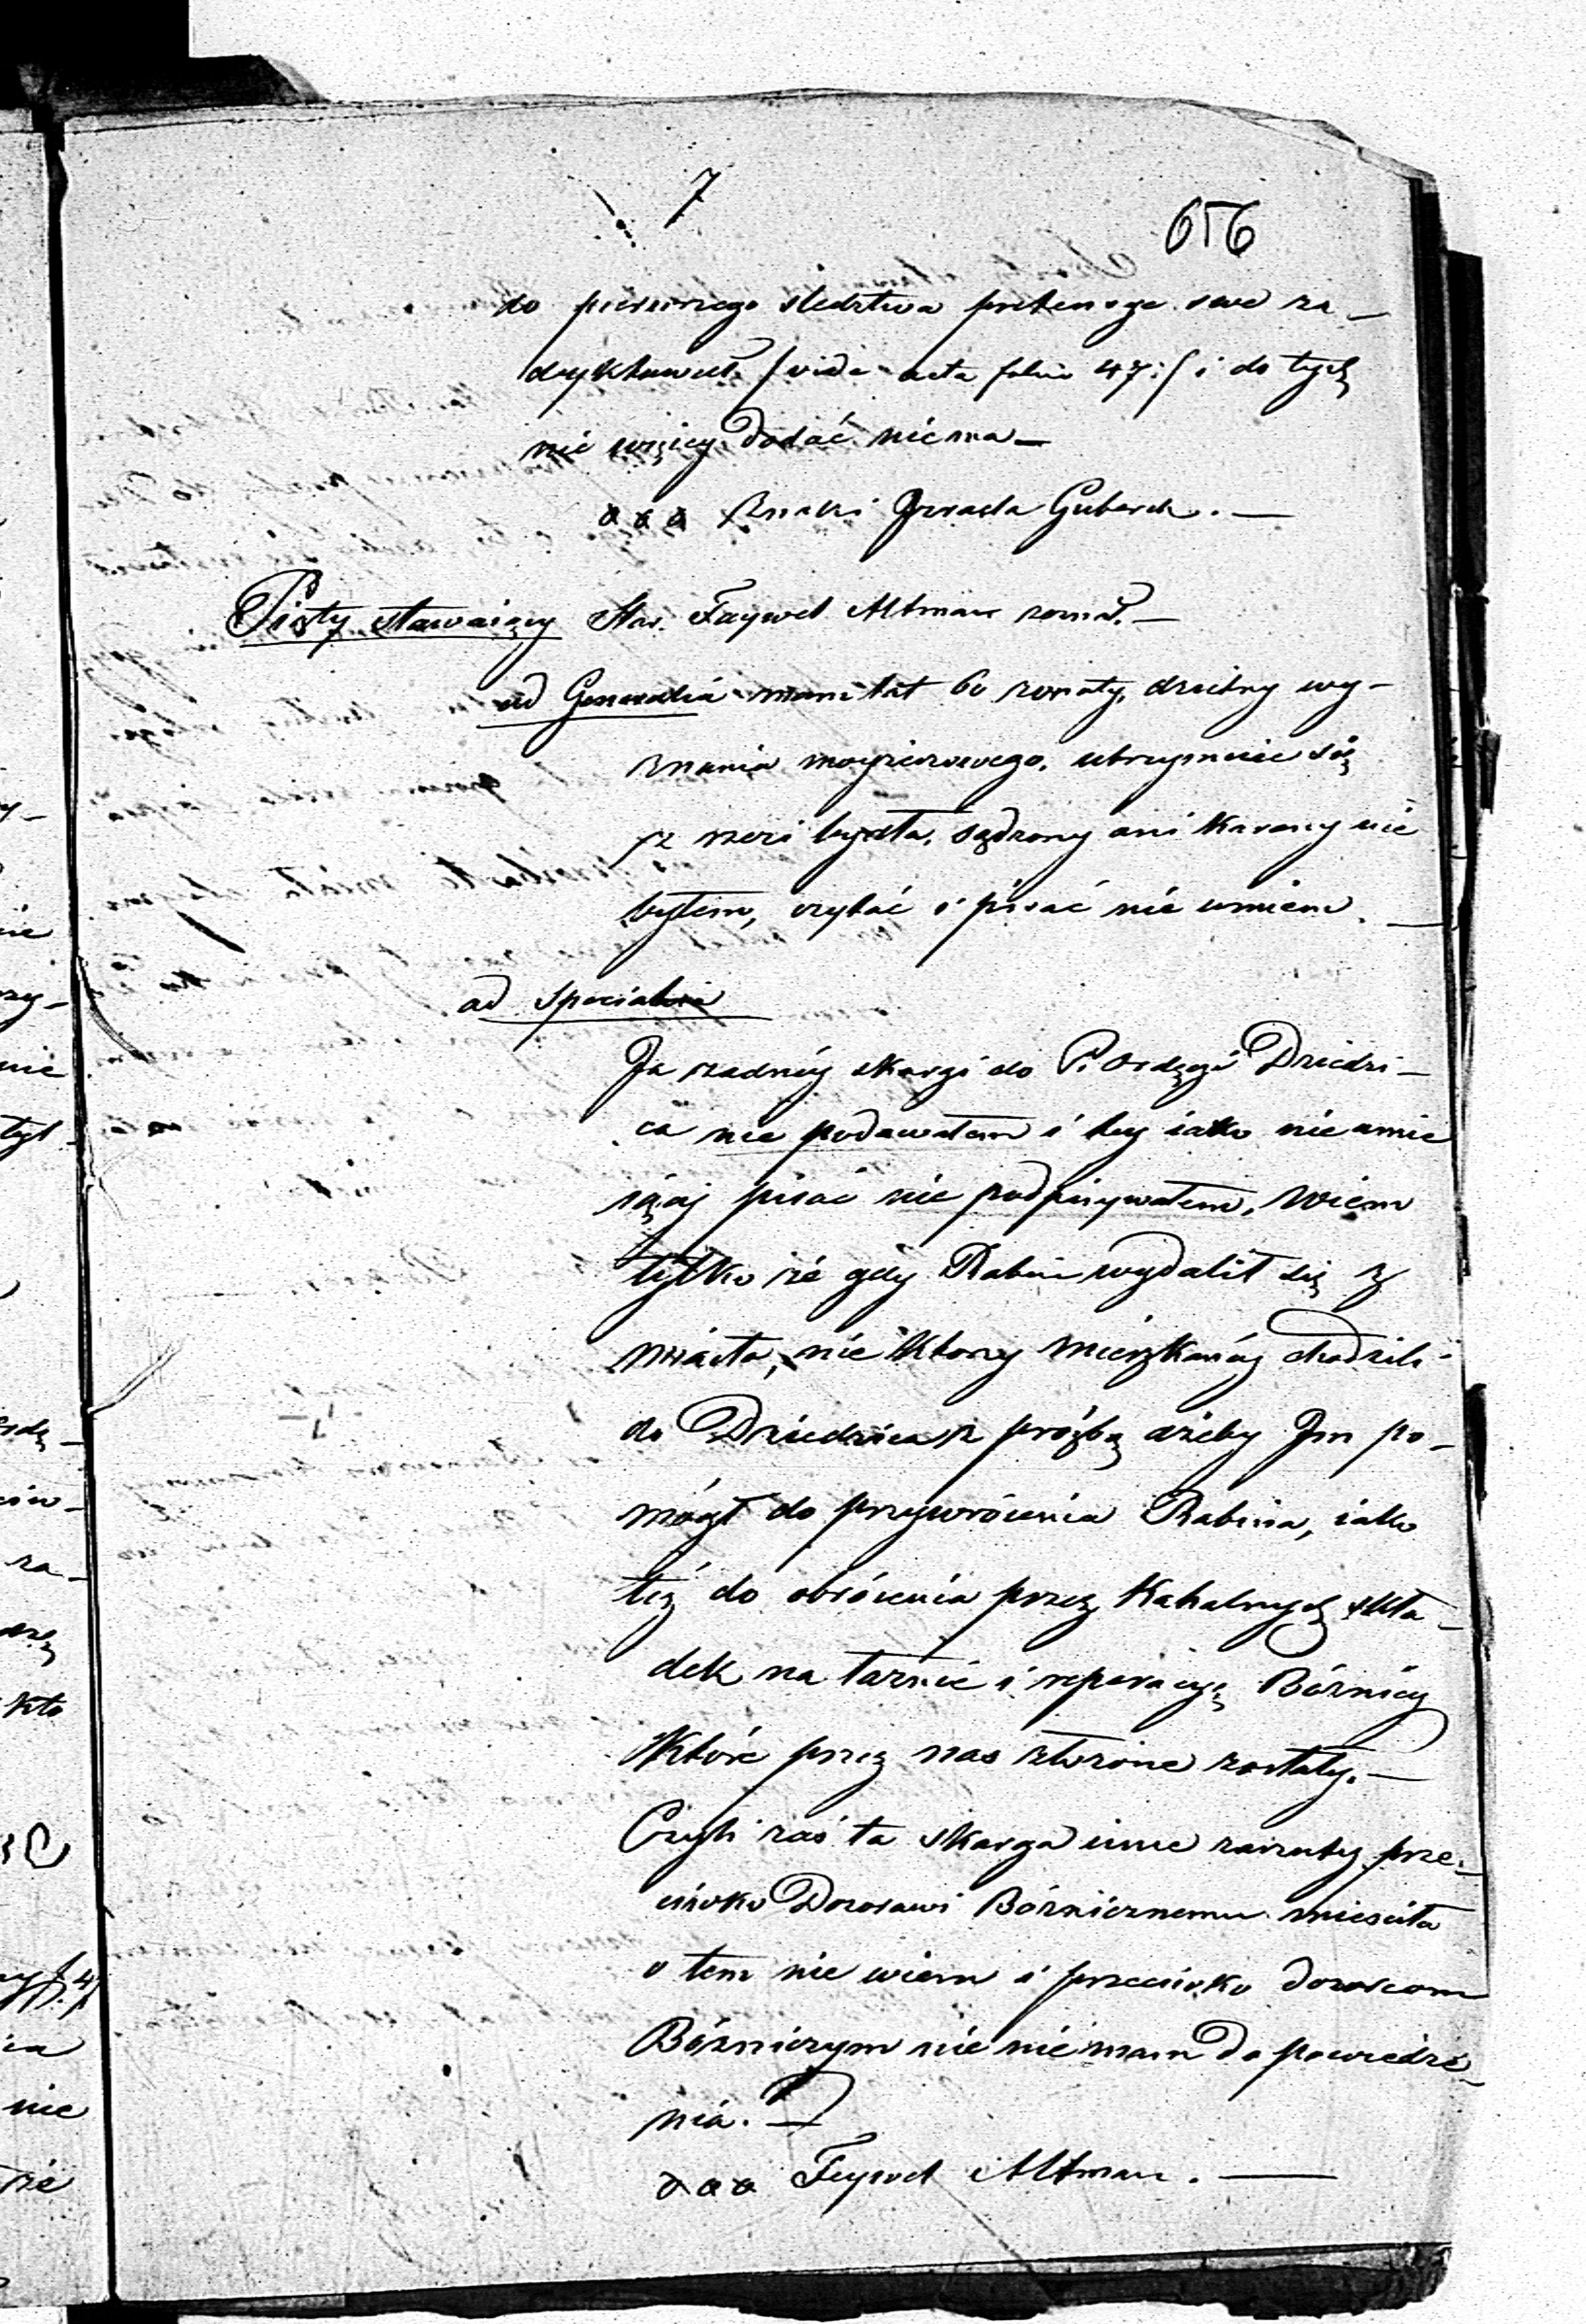 7
656
do pierwszego śledztwa pretensye swe za-
dyktował /vide acta folio 47:/ i do tych
nic więcy dodać niema—
o o o Znaki Izraela Guberek.—
Piąty stawaiący Star. Faywel Altman zeznał.—
ad Generalia mam lat 60 żonaty, dzietny wy-
znania moyżeszowego, utrzymuie się
z rzezi bydła, sądzony ani karany nie
byłem, czytać i pisać nie umiem.—
ad specialia
Ja żadnéy skargi do P. Ordęgi Dziedzi-
ca nie podawałem i tey iako nie umie
iący pisać nie podpisywałem, wiem
tylko że gdy Rabin wydalił się z
miasta, nie ktorzy mieszkańcy chodzili
do Dziedzica z prózbą ażeby Im po-
mógł do przywrócenia Rabina, iako
téż do obrócenia przez Kahalnych skła-
dek na łaznie i reperacyę Bóżnicy
które przez nas złożone zostały.—
Czyli zaś ta skarga inne zarzuty prze-
ciwko Dozorowi Bóżnicznemu mieściła
o tem nie wiem i przeciwko dozorcom
Bóżniczym nic nie mam do powiedze-
nia.—
o o o Feywel Altman.—